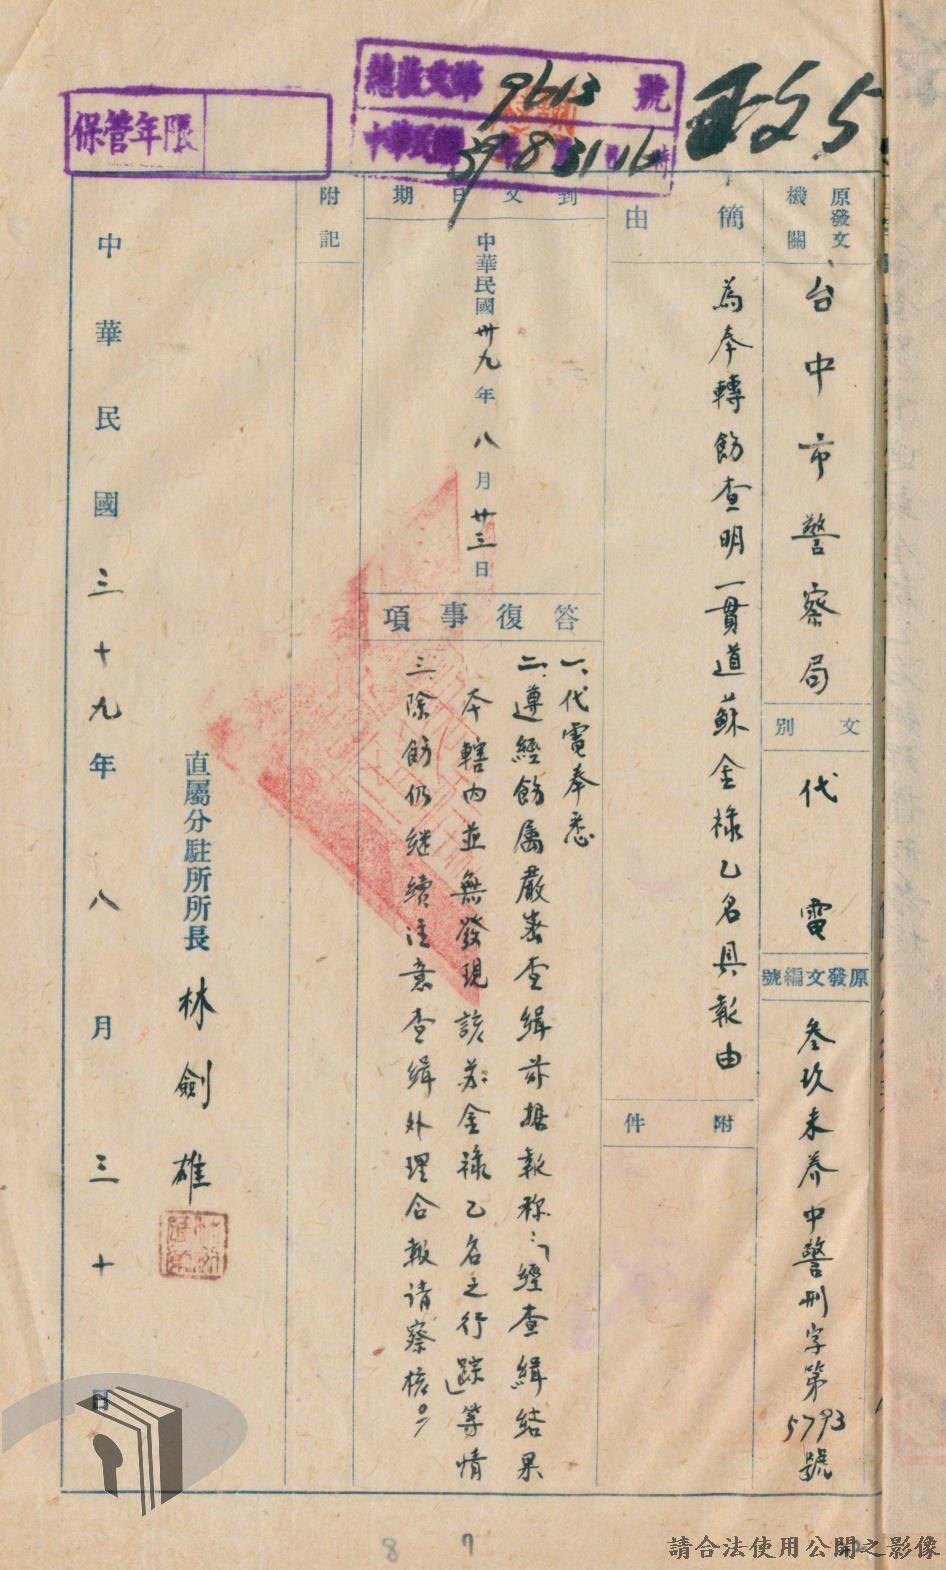 總收文第9613號
中華民國39年8月31日16時
政5
保管年限
原發文機關
台中市警察局
文別
代電
原發文編號
叁玖未养中警刑字第5793號
簡由
為奉轉飭查明一貫道蘇金祿乙名具報由
附件
到文日期
中華民國卅九年八月廿三日
答復事項
一、代電奉悉
二、遵經飭屬嚴密查緝茲据報称：「經查緝結果
本轄內並無發現該苏金祿乙名之行踪」等情
三、除飭仍继續注意查緝外理合報请察核。
附記
直屬分駐所所長 林劍雄
中華民國三十九年八月三十日
8 7
請合法使用公開之影像